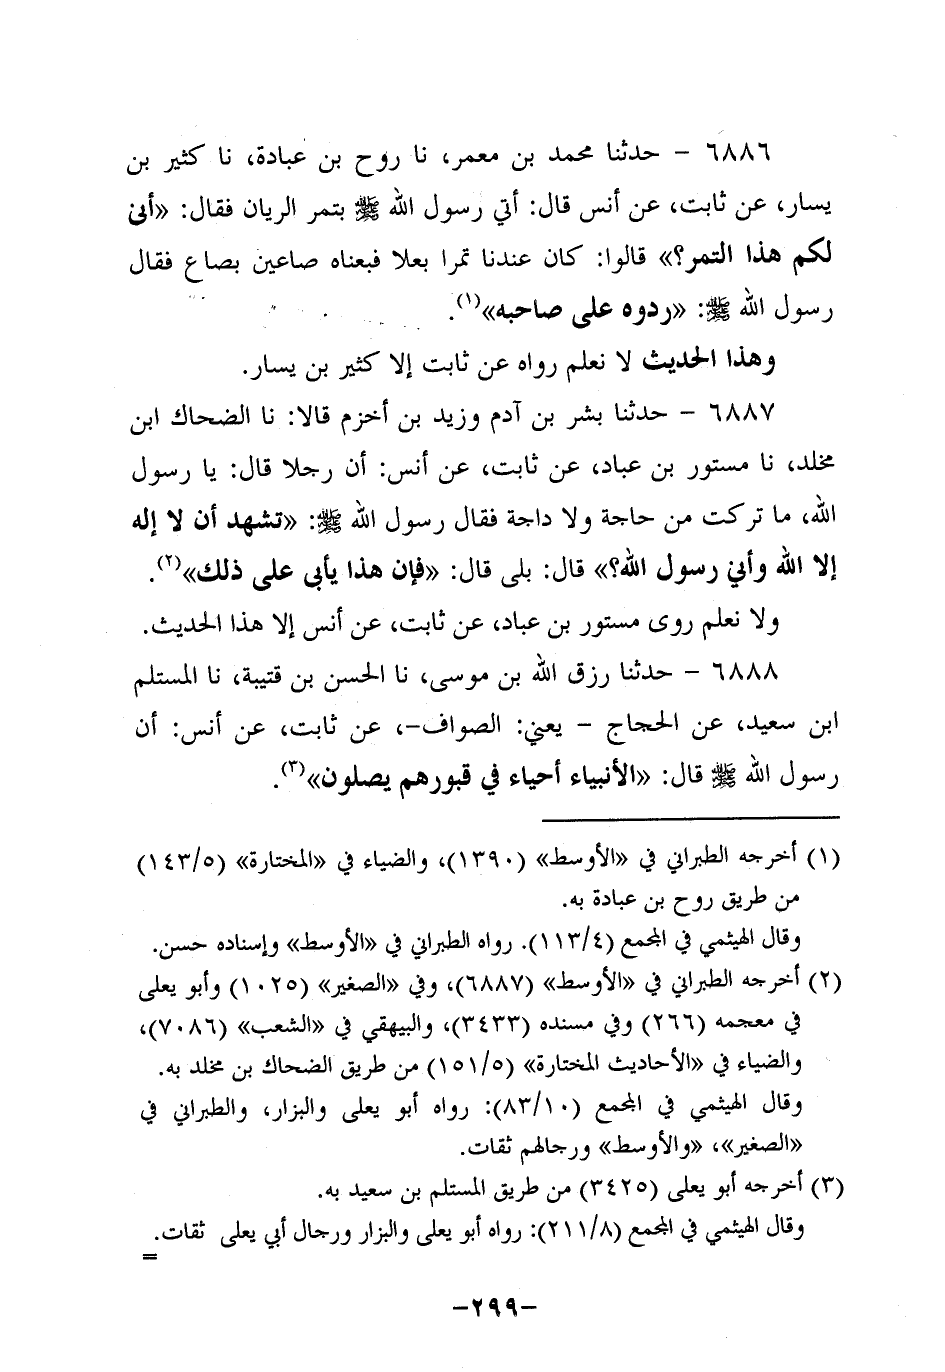 ٦٨٨٦ - حدثنا محمد بن معمر، نا روح بن عبادة، نا كثير بن
يسار، عن ثابت، عن أنس قال: أتي رسول الله ﷺ بتمر الريان فقال: «أنى
لكم هذا التمر؟» قالوا: كان عندنا تمرا بعلا فبعناه صاعين بصاع فقال
رسول الله ﷺ: «ردوه على صاحبه»(١).
وهذا الحديث لا نعلم رواه عن ثابت إلا كثير بن يسار.
٦٨٨٧ - حدثنا بشر بن آدم وزيد بن أخزم قالا: نا الضحاك ابن
مخلد، نا مستور بن عباد، عن ثابت، عن أنس: أن رجلا قال: يا رسول
الله، ما تركت من حاجة ولا داجة فقال رسول الله ﷺ: «تشهد أن لا إله
إلا الله وأني رسول الله؟» قال: بلى قال: «فإن هذا يأبى على ذلك»(٢).
ولا نعلم روى مستور بن عباد، عن ثابت، عن أنس إلا هذا الحديث.
٦٨٨٨ - حدثنا رزق الله بن موسى، نا الحسن بن قتيبة، نا المستلم
ابن سعيد، عن الحجاج - يعني: الصواف-، عن ثابت، عن أنس: أن
رسول الله ﷺ قال: «الأنبياء أحياء في قبورهم يصلون»(٣).
(١) أخرجه الطبراني في «الأوسط» (١٣٩٠)، والضياء في «المختارة» (١٤٣/٥)
من طريق روح بن عبادة به.
وقال الهيثمي في المجمع (١١٣/٤). رواه الطبراني في «الأوسط» وإسناده حسن.
(٢) أخرجه الطبراني في «الأوسط» (٦٨٨٧)، وفي «الصغير» (١٠٢٥) وأبو يعلى
في معجمه (٢٦٦) وفي مسنده (٣٤٣٣)، والبيهقي في «الشعب» (٧٠٨٦)،
والضياء في «الأحاديث المختارة» (١٥١/٥) من طريق الضحاك بن مخلد به.
وقال الهيثمي في المجمع (٨٣/١٠): رواه أبو يعلى والبزار، والطبراني في
«الصغير»، «والأوسط» ورجالهم ثقات.
(٣) أخرجه أبو يعلى (٣٤٢٥) من طريق المستلم بن سعيد به.
وقال الهيثمي في المجمع (٢١١/٨): رواه أبو يعلى والبزار ورجال أبي يعلى ثقات.
=
-٢٩٩-